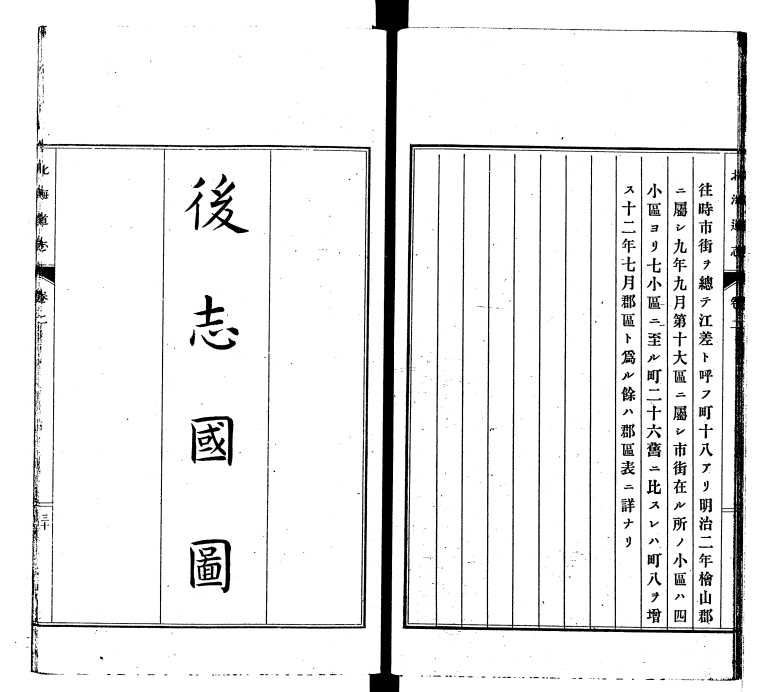 北海道志
卷二
往時市街ヲ總テ江差ト呼フ町十八アリ明治二年檜山郡
ニ屬シ九年九月第十大區ニ屬シ市街在ル所ノ小區ハ四
小區ヨリ七小區ニ至ル町二十六舊ニ比スレハ町八ヲ增
ス十二年七月郡區ト爲ル餘ハ郡區表ニ詳ナリ
後志國圖
北海道志
卷二
三十